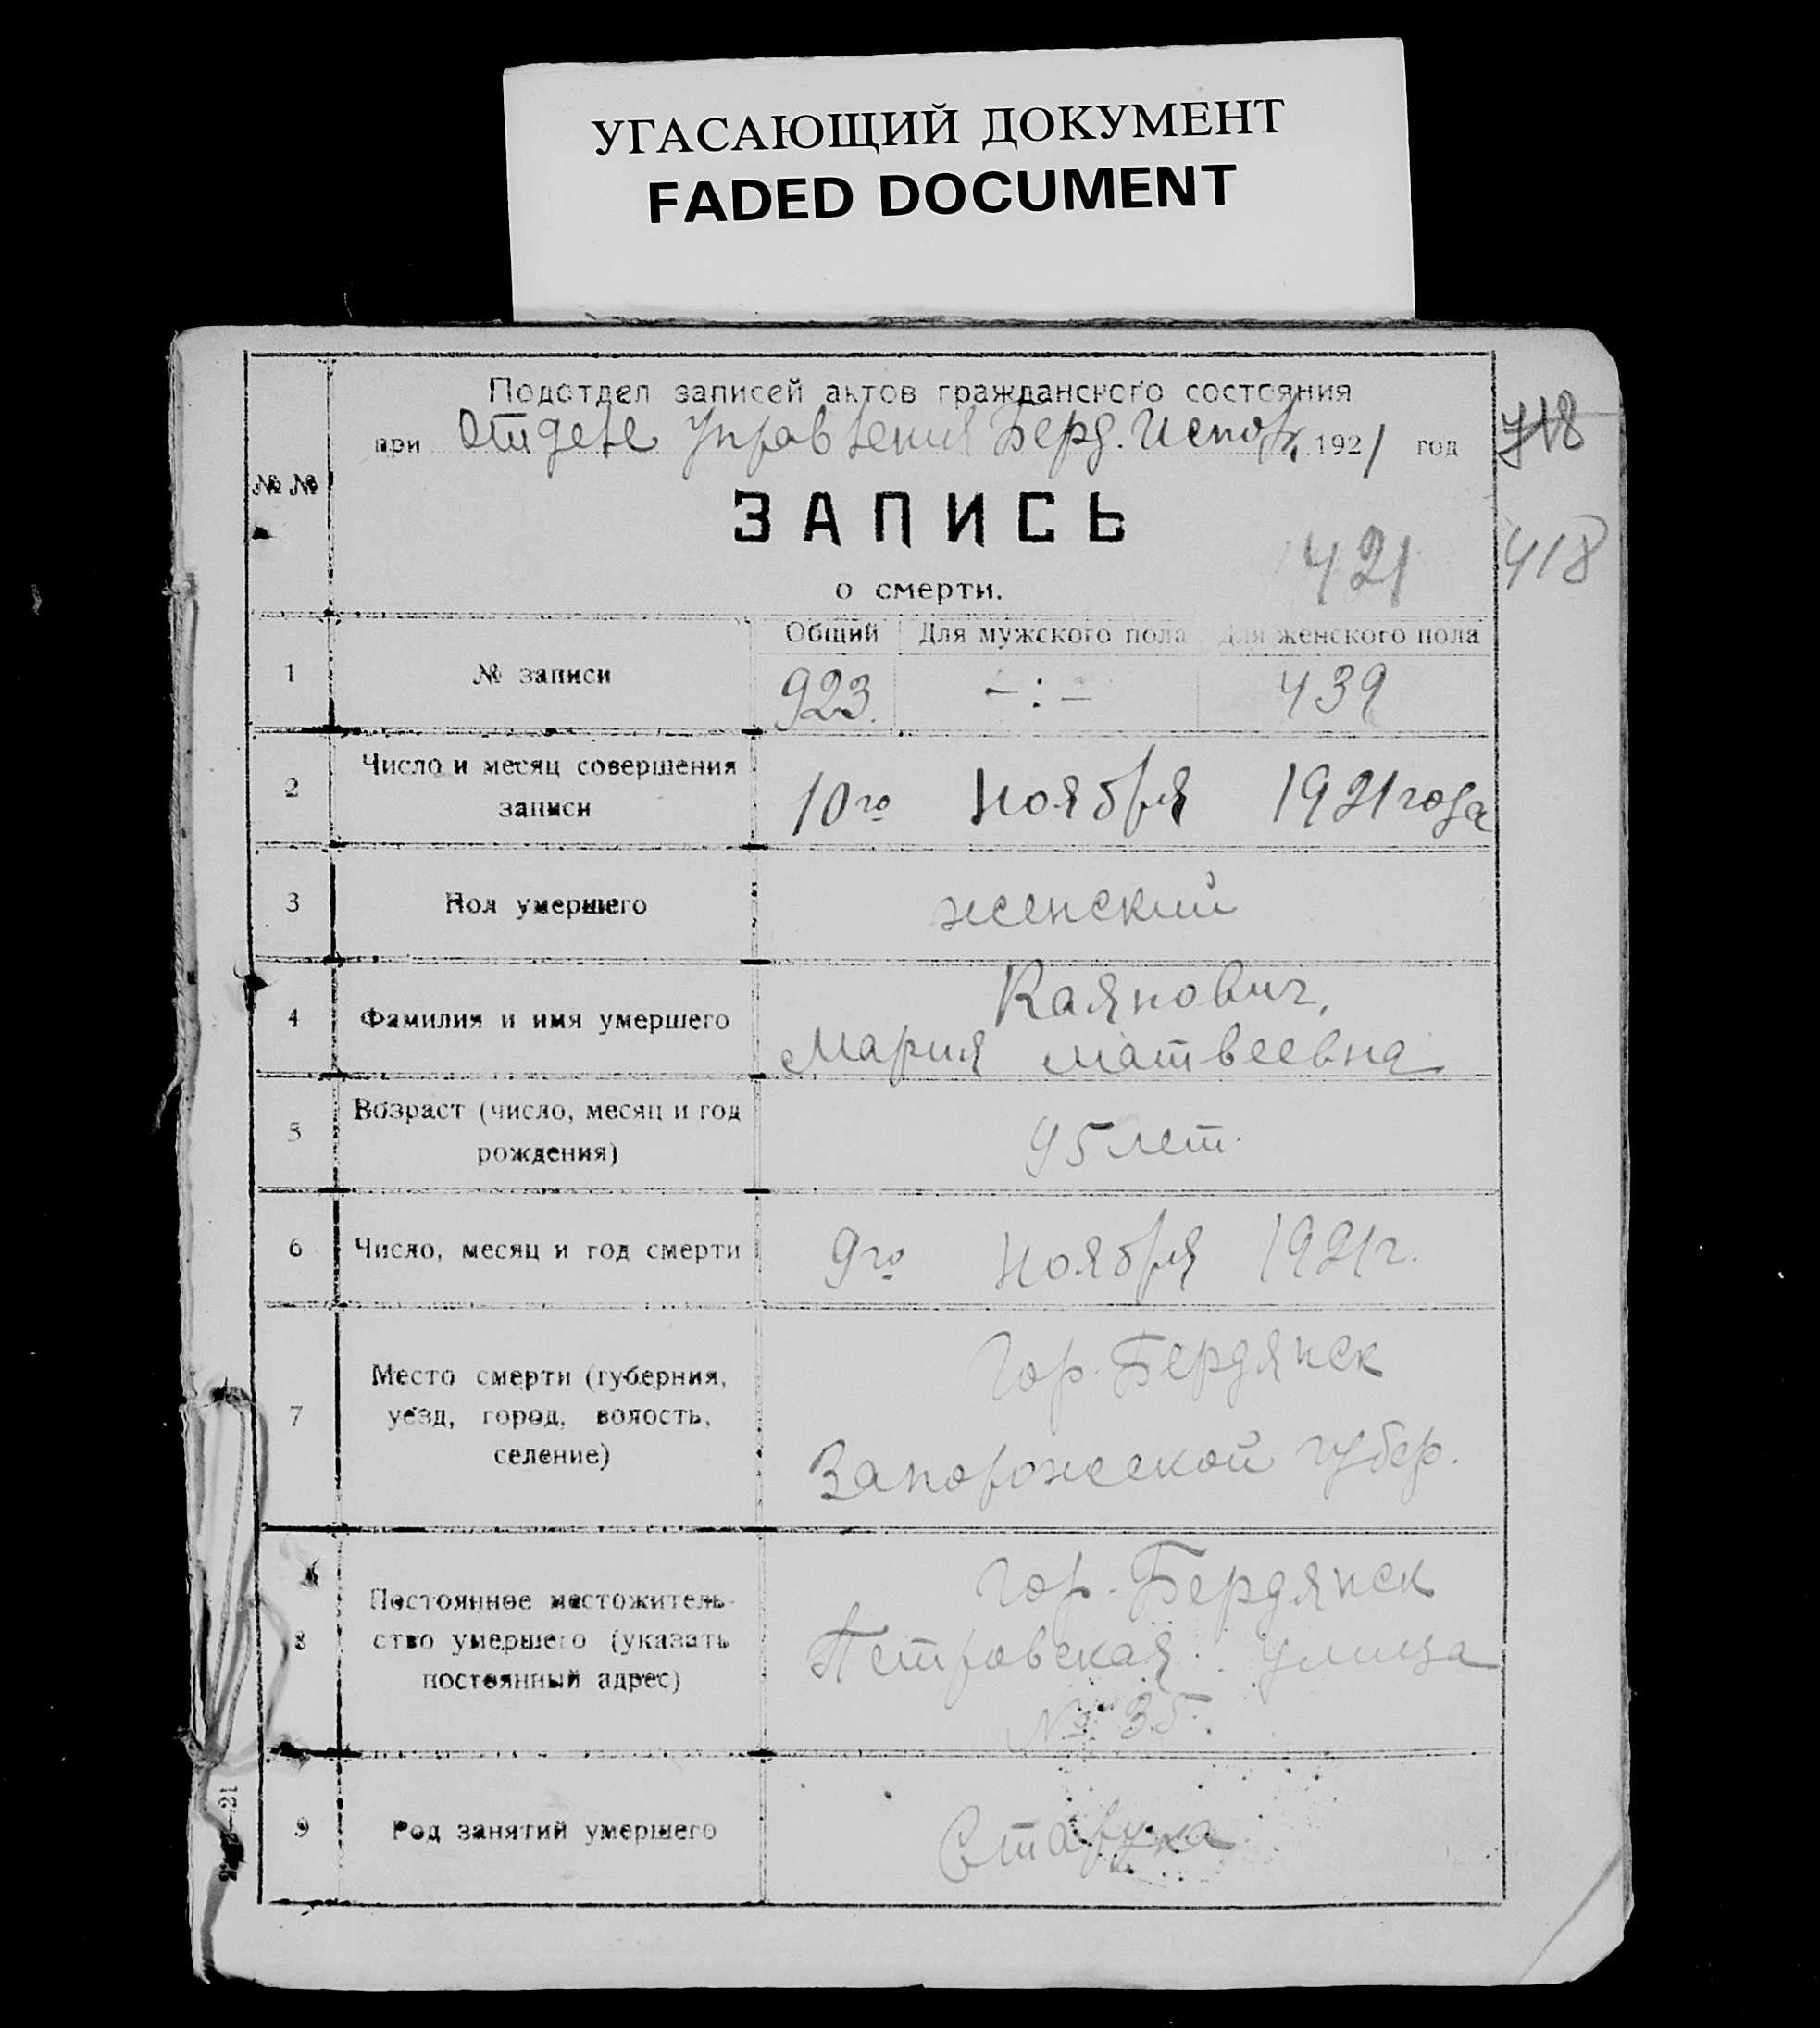 УГАСАЮЩИЙ ДОКУМЕНТ
FADED DOCUMENT
Подотдел записей актов гражданского состояния
при Отделе Управления Берд. Исполк. 1921 год
718
№ №
ЗАПИСЬ
421
418
о смерти.
Общий Для мужского пола Для женского пола
1 № записи 923. -:- 439
2 Число и месяц совершения
записи
10го Ноября 1921 года
3 Пол умершего женский
4 Фамилия и имя умершего
Каянович,
Мария Матвеевна
5 Возраст (число, месяц и год
рождения)
95 лет.
6 Число, месяц и год смерти 9го Ноября 1921 г.
7 Место смерти (губерния,
уезд, город, волость,
селение)
Гор. Бердянск
Запорожской губер.
8 Постоянное местожитель-
ство умершего (указать
постоянный адрес)
Гор. Бердянск
Петровская улица
№ 35.
9 Род занятий умершего Старуха